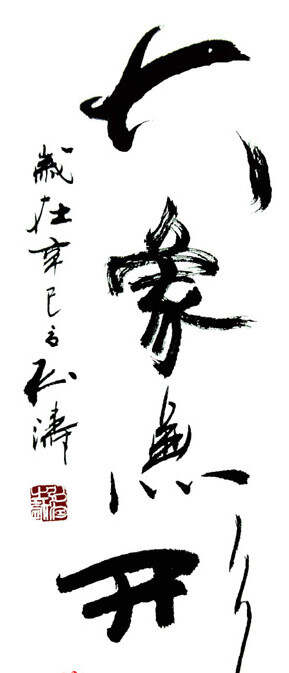 大象無形
歲在辛巳 濤